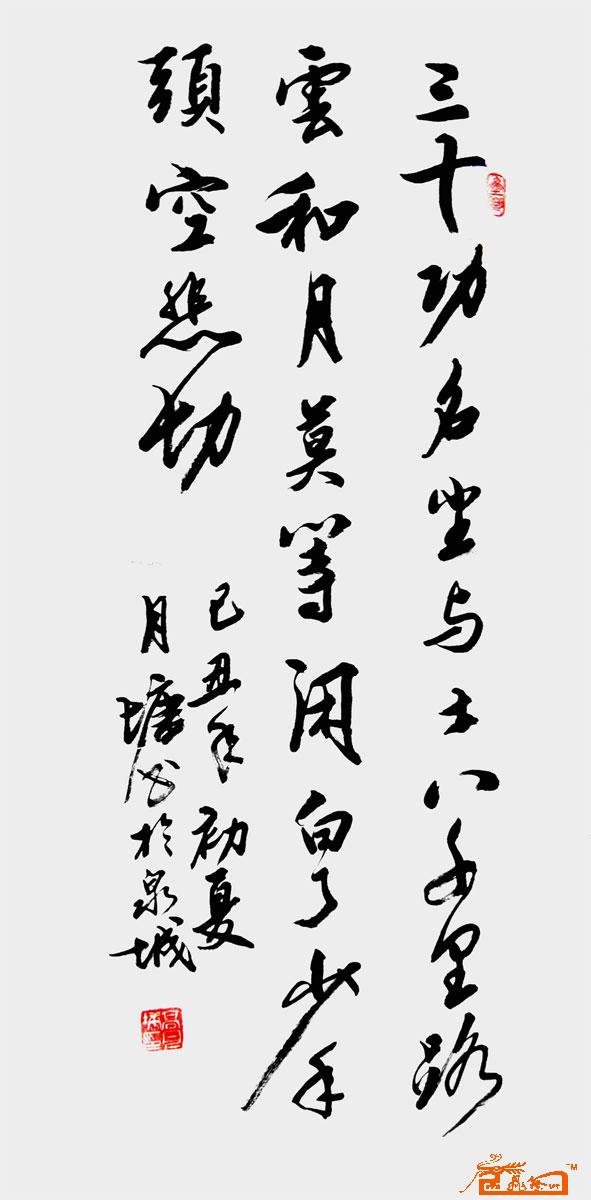 三十功名尘与土八千里路
雲和月莫等闲白了少年
頭空悲切
己丑年初夏
月塘书於泉城